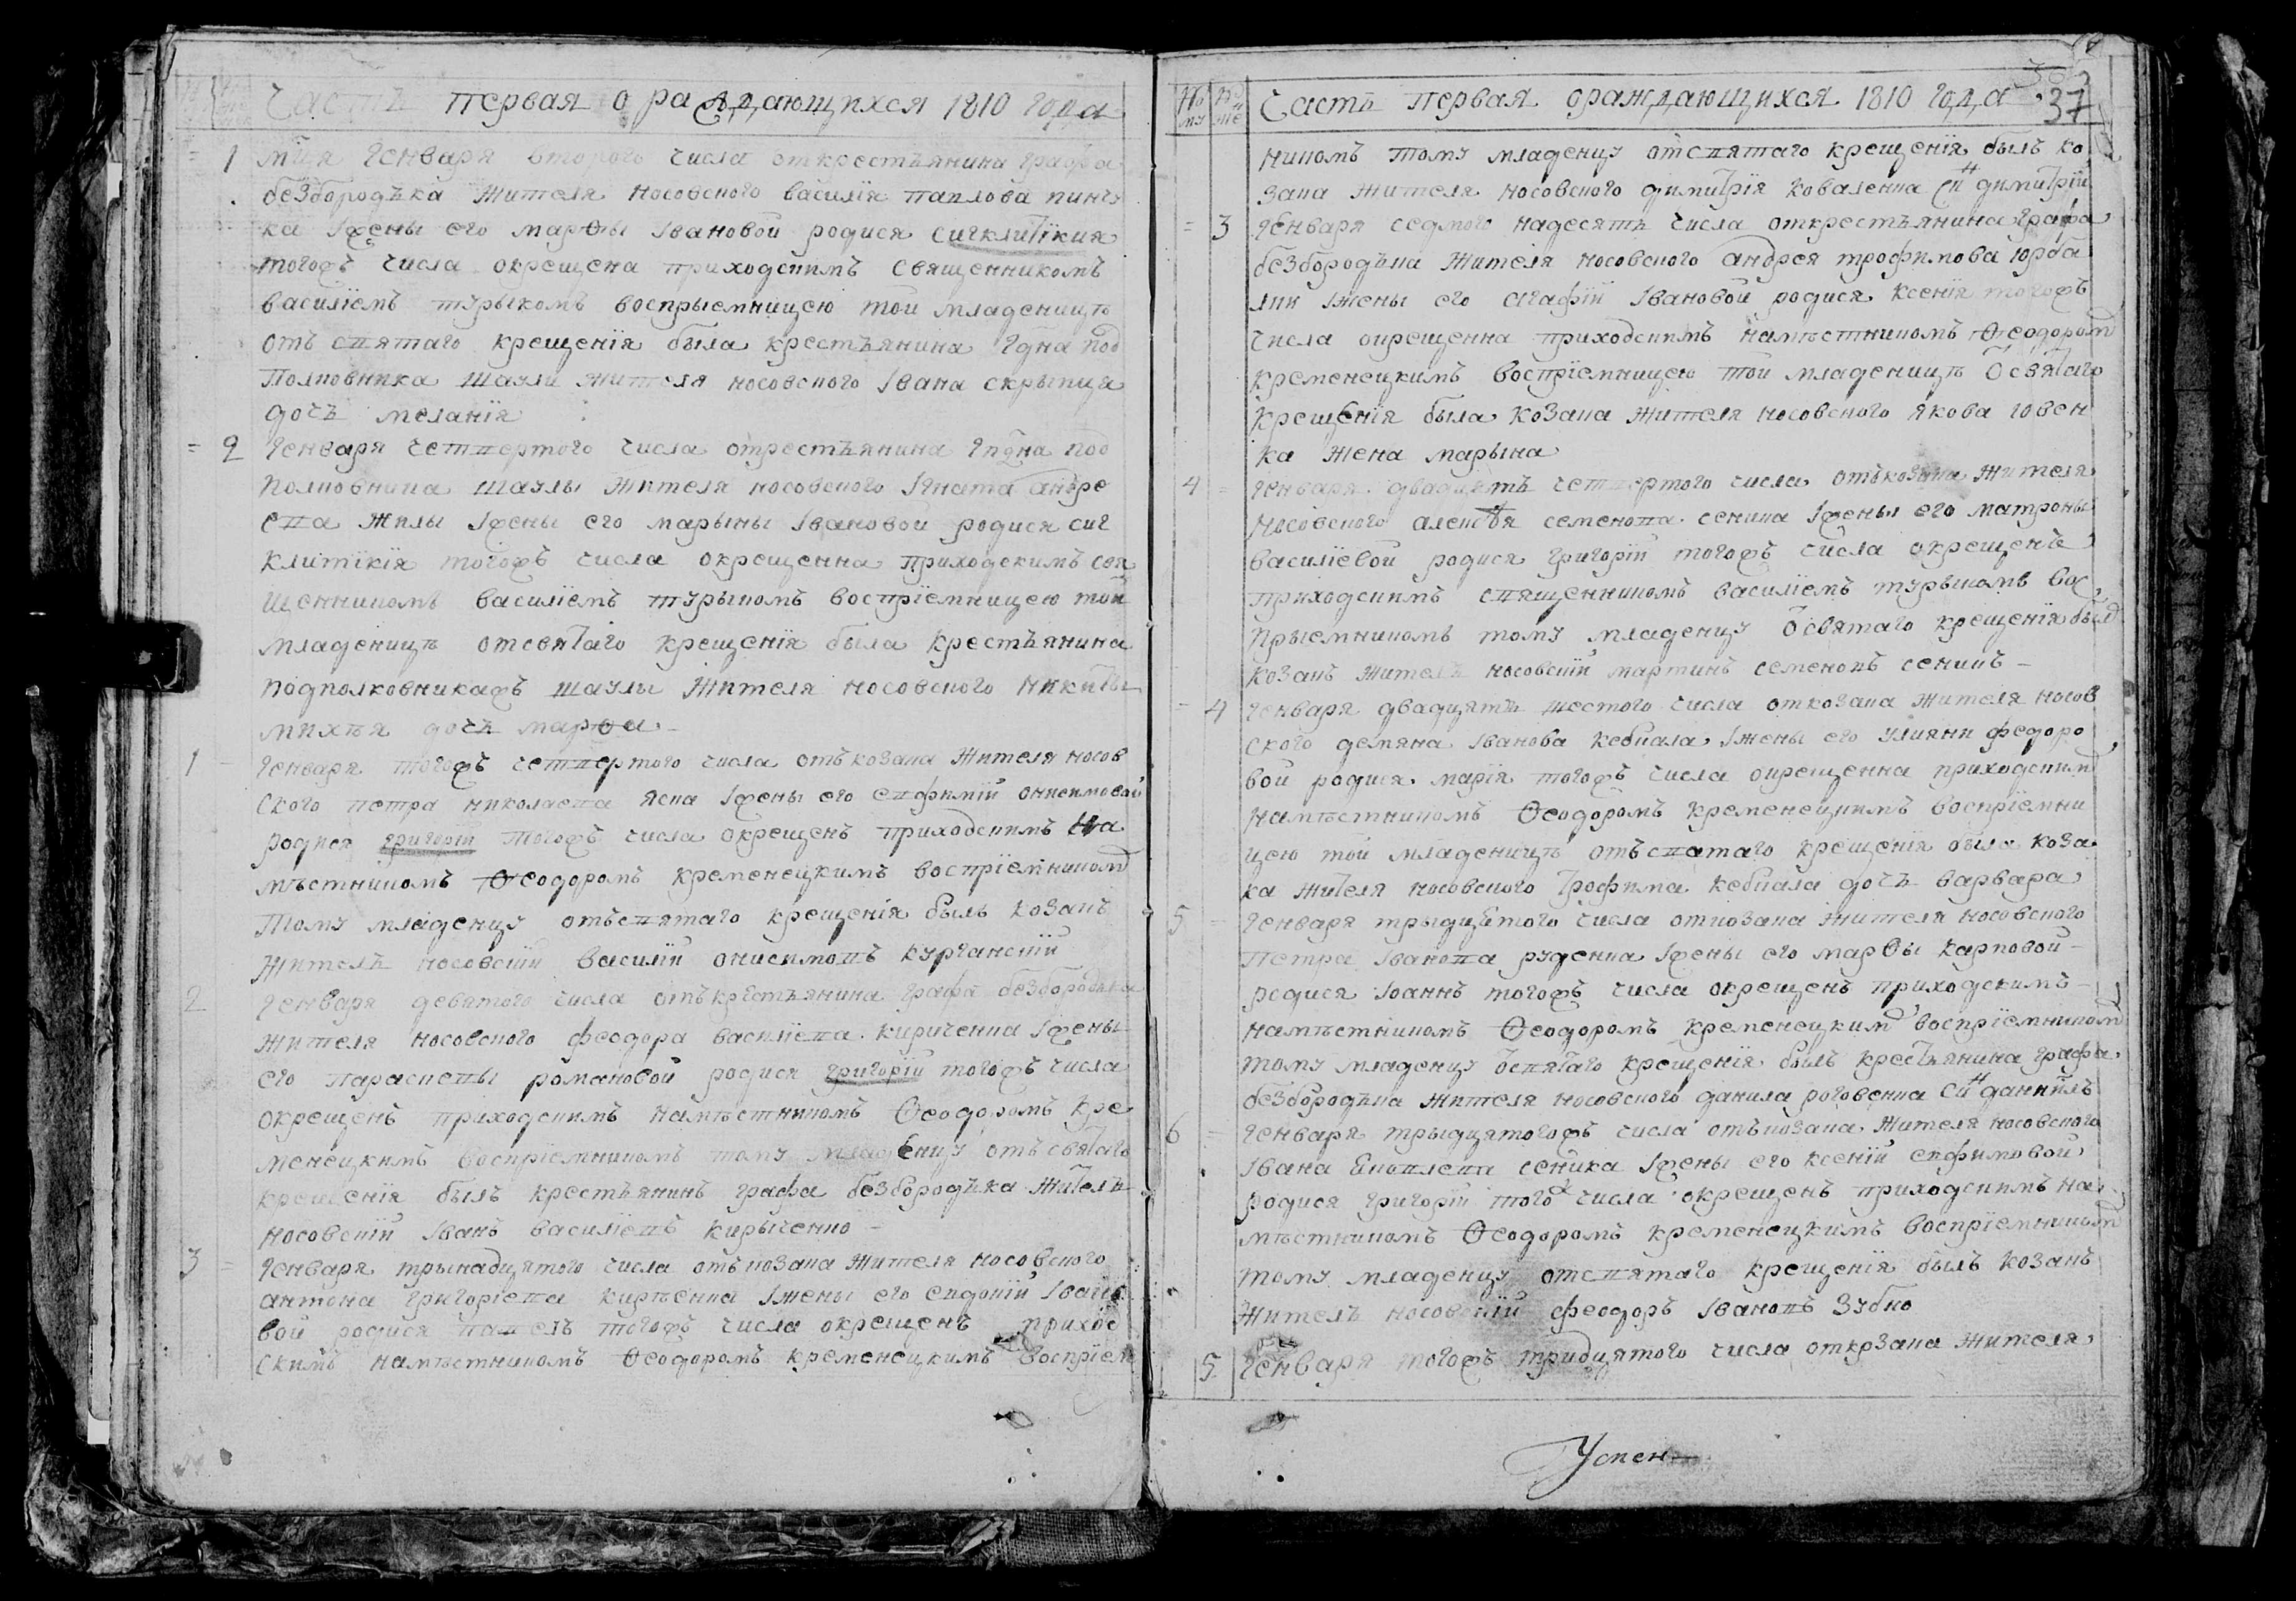 Часть первая о раждающихся 1810 года
1 мца генваря второго числа открестьянина графа
безбородька жителя носовского василія павлова пинчу
ка іжены его марѳы івановой родися сигклитікия
тогожъ числа окрещена приходскимъ священникомъ
василіемъ турыкомъ воспрыемницею той младеницѣ
отъ святаго крещенія была крестьянина гдна под
полковника шаули жителя носовского івана скрыпца
дочь меланія
2 генваря четвертого числа отрестьянина гпдна под
полковника шаулы жителя носовского ігната андре
ева жилы іжены его марыны івановой родися сиг
клитікія тогожъ числа окрещенна приходскимъ свя
щенникомъ василіемъ турыкомъ воспріемницею той
младеницѣ отсвятаго крещенія была крестьянина
подполковникажъ шаулы жителя носовского никиты
михѣя дочь марѳа
1 генваря тогожъ четвертого числа отъ козака жителя носов
ского петра николаева яска іжены его евфиміи онисимовой
родися григорій тогожъ числа окрещенъ приходскимъ на
мѣстникомъ Ѳеодоромъ кременецкимъ воспріемникомъ
тому младенцу отъсвятаго крещенія былъ козакъ
житель носовскій василій онисимовъ курганскій
2 генваря девятого числа отъкрестьянина графа безбородька
жителя носовского феодора василіева кириченка іжены
его параскевы романовой родися григорій тогожъ числа
окрещенъ приходскимъ намѣстникомъ Ѳеодоромъ кре
менецкимъ воспріемникомъ тому младенцу отъ святаго
крещенія былъ крестьянинъ графа безбородька житель
носовскій іванъ василіевъ кирыченко
3 генваря трынадцятого числа отъкозака жителя носовского
антона григоріева іжены его евдокіи івано
вой родися павелъ тогожъ числа окрещенъ приход
скимъ намѣстникомъ Ѳеодоромъ кременецкимъ воспріем
Часть первая ораждающихся 1810 года
37
никомъ тому младенцу отсвятаго крещенія былъ ко
зака жителя носовского димитрія коваленка снъ димитрій
3 генваря седмого надесять числа открестьянина графа
безбородька жителя носовского андрея трофимова юрба
лки іжены его агафіи івановой родися ксенія тогожъ
числа окрещенна приходскимъ намѣстникомъ Ѳеодоромъ
кременецкимъ воспріемницею той младеницѣ ѿ святаго
крещенія была козака жителя носовского якова говен
ка жена марына
4 генваря двадцять четвертого числа отъкозака жителя
носовского алексѣя семенова сеника іжены его матроны
василіевой родися григорій тогожъ числа окрещенъ
приходскимъ священникомъ василіемъ турыкомъ вос
прыемникомъ тому младенцу ѿ святаго крещенія былъ
козакъ житель носовскій мартинъ семеновъ сеникъ
4 генваря двадцять шестого числа откозака жителя носов
ского демяна іванова кебкала іжены его улияни федоро
вой родися марія тогожъ числа окрещенна приходскимъ
намѣстникомъ Ѳеодоромъ кременецкимъ воспріемни
цею той младеницѣ отъ святаго крещенія была коза
ка жителя носовского трофима кебкала дочь варвара
5 генваря трыдцятого числа откозака жителя носовского
петра іванова руденка іжены его марѳы карповой
родися іоаннъ тогожъ числа окрещенъ приходскимъ
намѣстникомъ Ѳеодоромъ кременецкимъ воспріемникомъ
тому младенцу ѿсвятаго крещенія былъ крестьянина графа
безбородька жителя носовского данила роговенка снъ даниилъ
6 генваря трыдцятогожъ числа отъкозака жителя носовского
івана сеника іжены его ксеніи евфимовой
родися григорій тогож числа окрещенъ приходскимъ на
мѣстникомъ Ѳеодоромъ кременецкимъ воспріемникомъ
тому младенцу отсвятаго крещенія былъ козакъ
житель носовскій феодоръ івановъ зубко
5 генваря тогожъ тридцятого числа откозака жителя
Успен